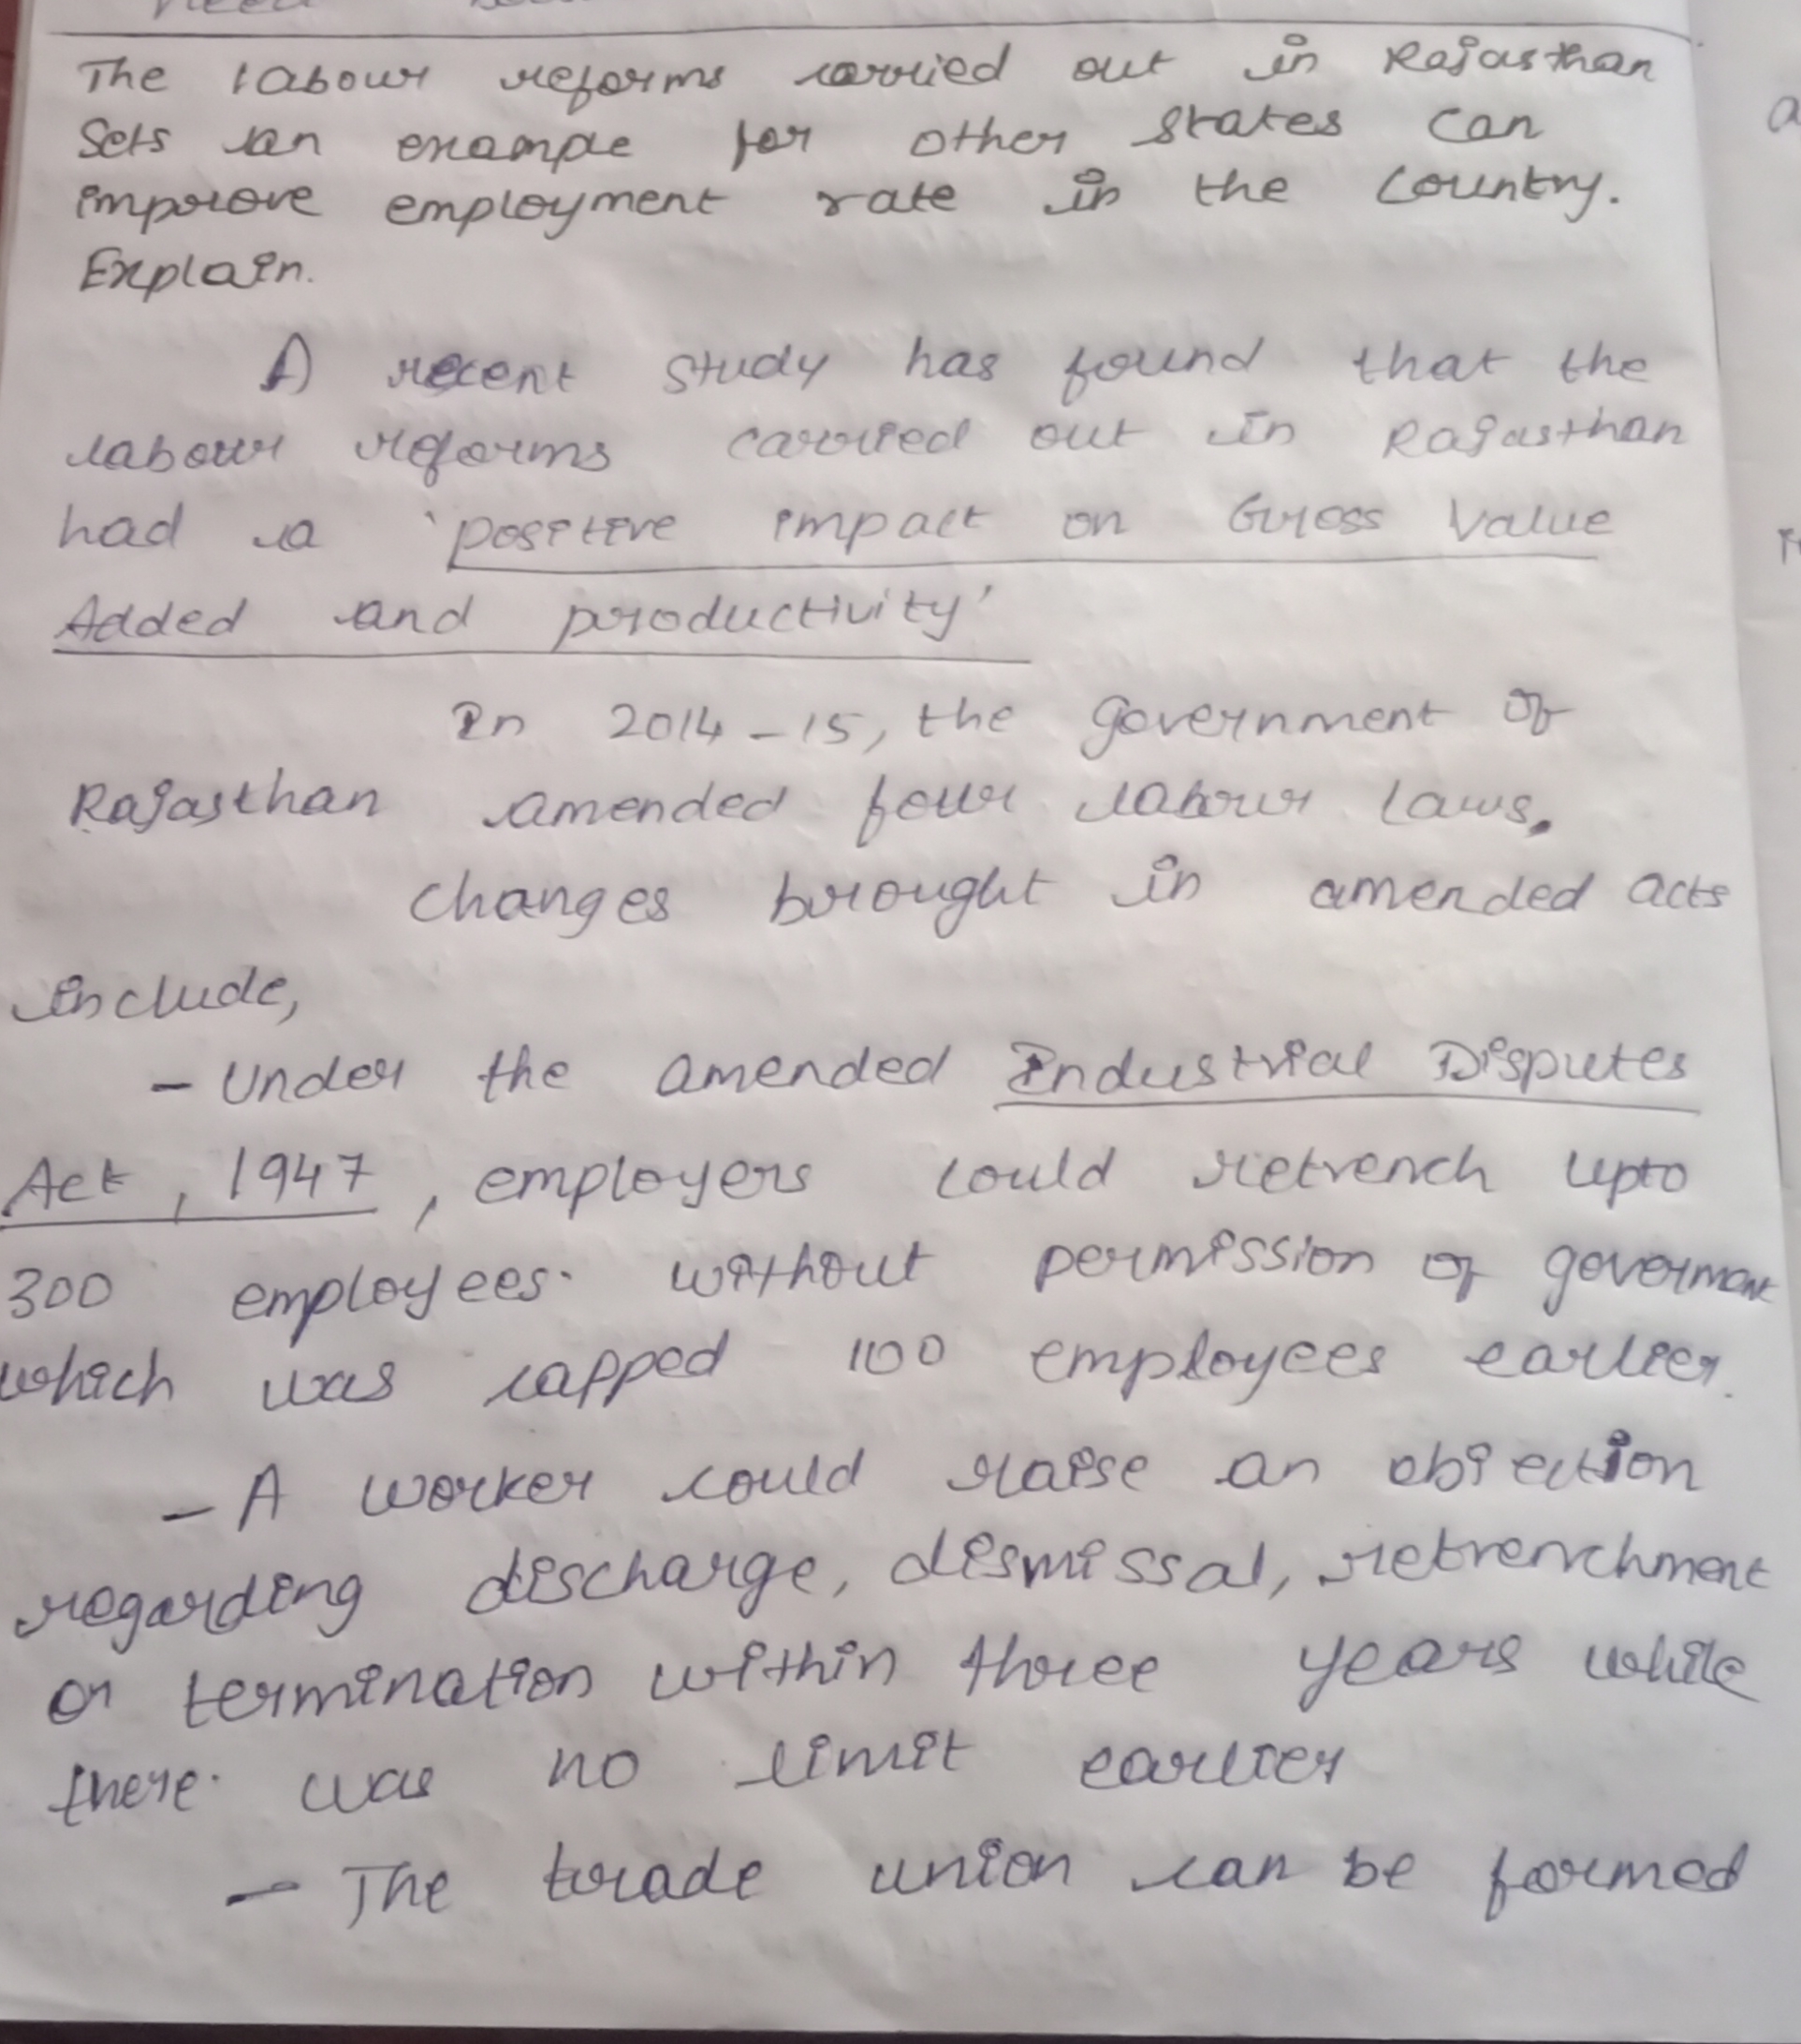 The labour reforms carried out in Rajasthan
Sets an example for other states can
improve employment rate in the country.
Explain.
A recent study has found that the
labour reforms carried out in Rajasthan
had a 'positive impact on Gross Value
Added and productivity'
In 2014-15, the government of
Rajasthan amended four labour laws.
Changes brought in amended acts
include,
- Under the amended Industrial Disputes
Act, 1947, employers could retrench upto
300 employees without permission of government
which was capped 100 employees earlier.
- A worker could raise an objection
regarding discharge, dismissal, retrenchment
or termination within three years while
there was no limit earlier
- The trade union can be formed